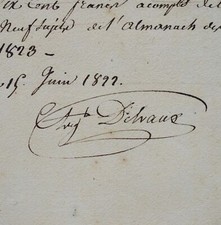 ix Cent francs acompte de l
Neuf sujets de l'Almanach de
1823 —
15. Juin 1822.
Delvaux